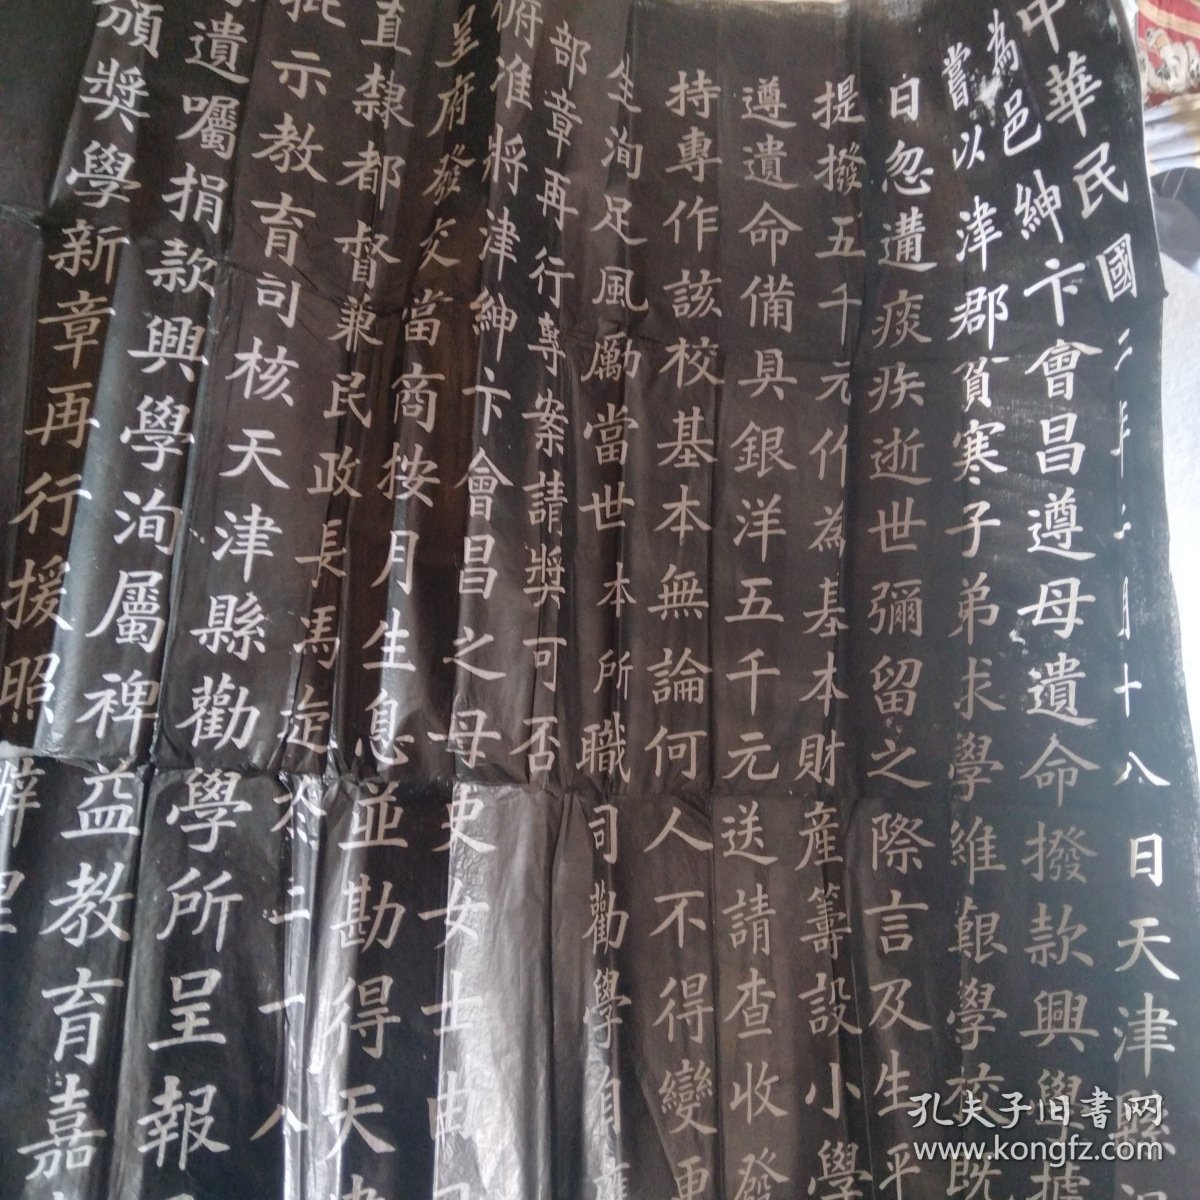 中華民國二年二月十八日天津縣
為邑紳卞會昌遵母遺命撥款興學據
嘗以津郡貧寒子弟求學維艱學校既
日忽遘痰疾逝世彌留之際言及生平
提撥五千元作為基本財產籌設小學
遵遺命備具銀洋五千元送請查收發
持專作該校基本無論何人不得變更
生洵足風勵當世本所職司勸學自應
部章再行專案請獎可否
俯准將津紳卞會昌之母吏女士由
呈府發交當商按月生息並勘得天津
直隸都督兼民政長馮
批示教育司核天津縣勸學所呈報
遺囑捐款興學洵屬裨益教育嘉
頒獎學新章再行援照辦理
孔夫子旧書网
www.kongfz.com